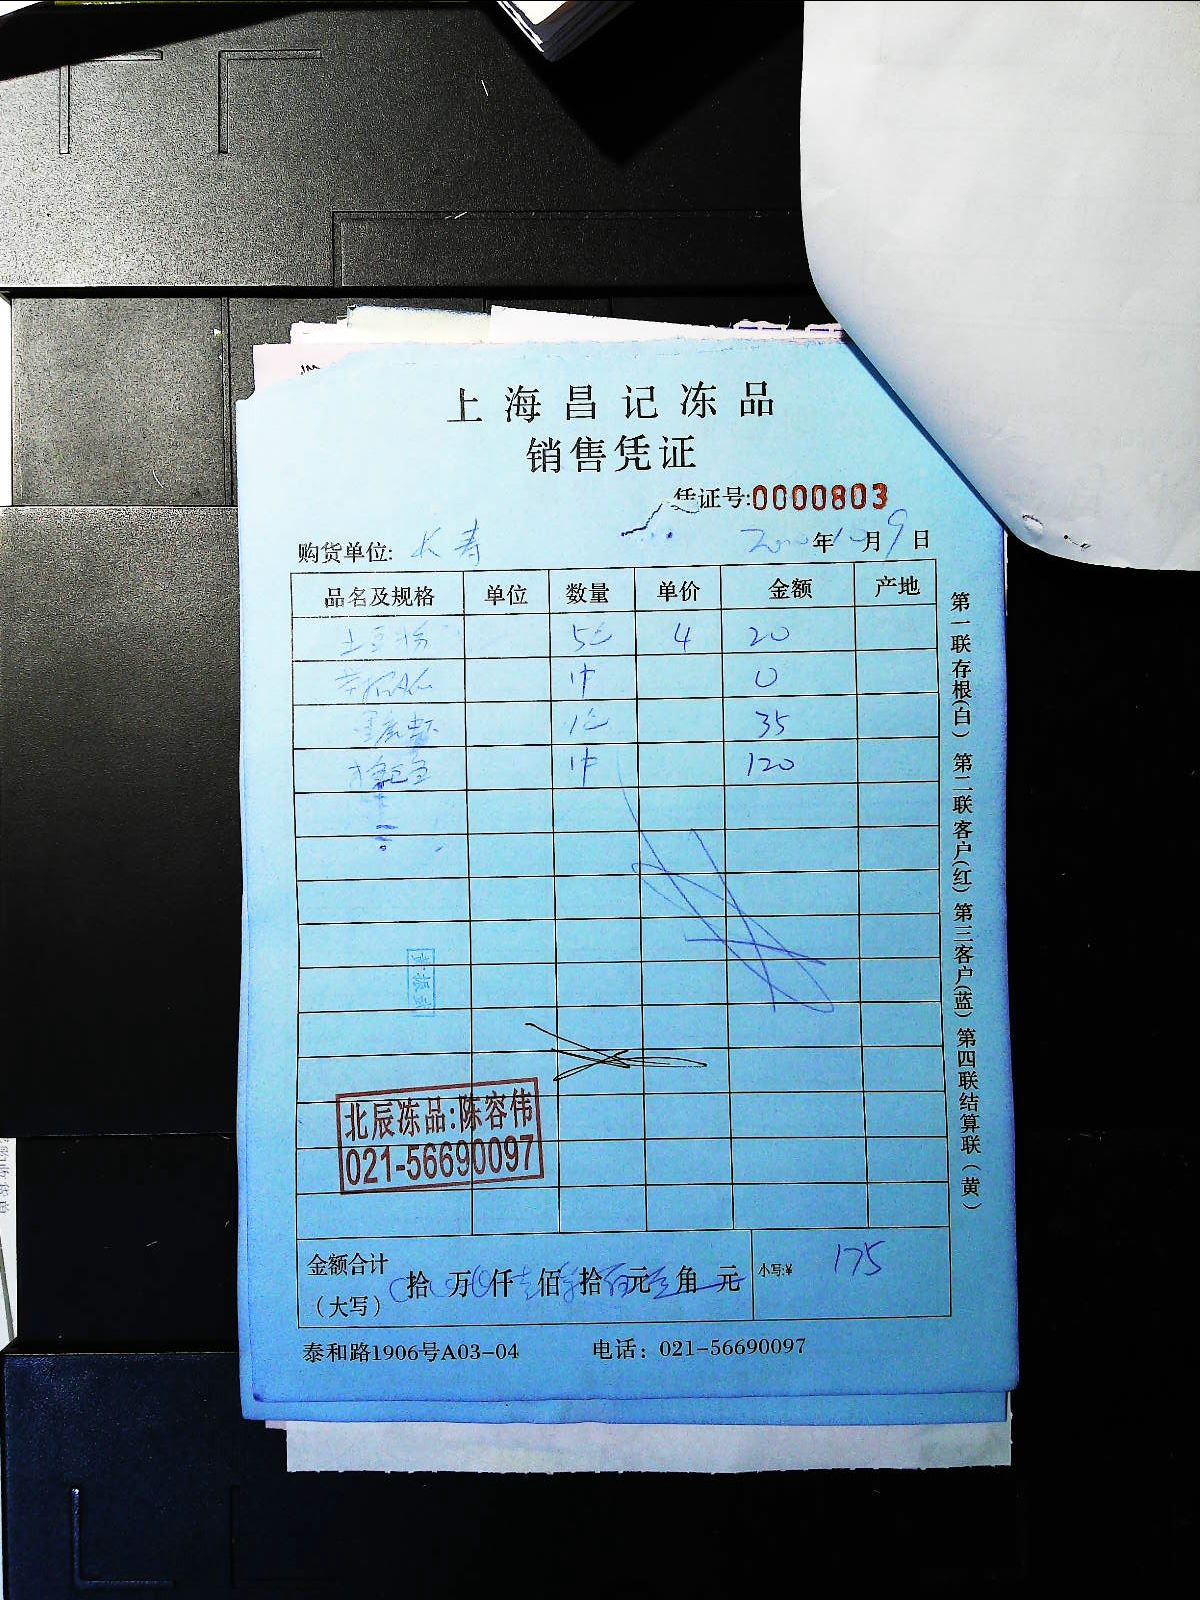 上海昌记冻品
销售凭证
凭证号:0000803
购货单位: 长寿 年10月9日
品名及规格 单位 数量 单价 金额 产地
土豆粉 5包 4 20
1件 0
1包 35
1件 120
北辰冻品:陈容伟
021-56690097
金额合计
（大写） 拾 万 仟 佰 拾 元 角 元 小写:¥ 175
泰和路1906号A03-04 电话：021-56690097
第一联存根(白) 第二联客户(红) 第三客户(蓝) 第四联结算联(黄)